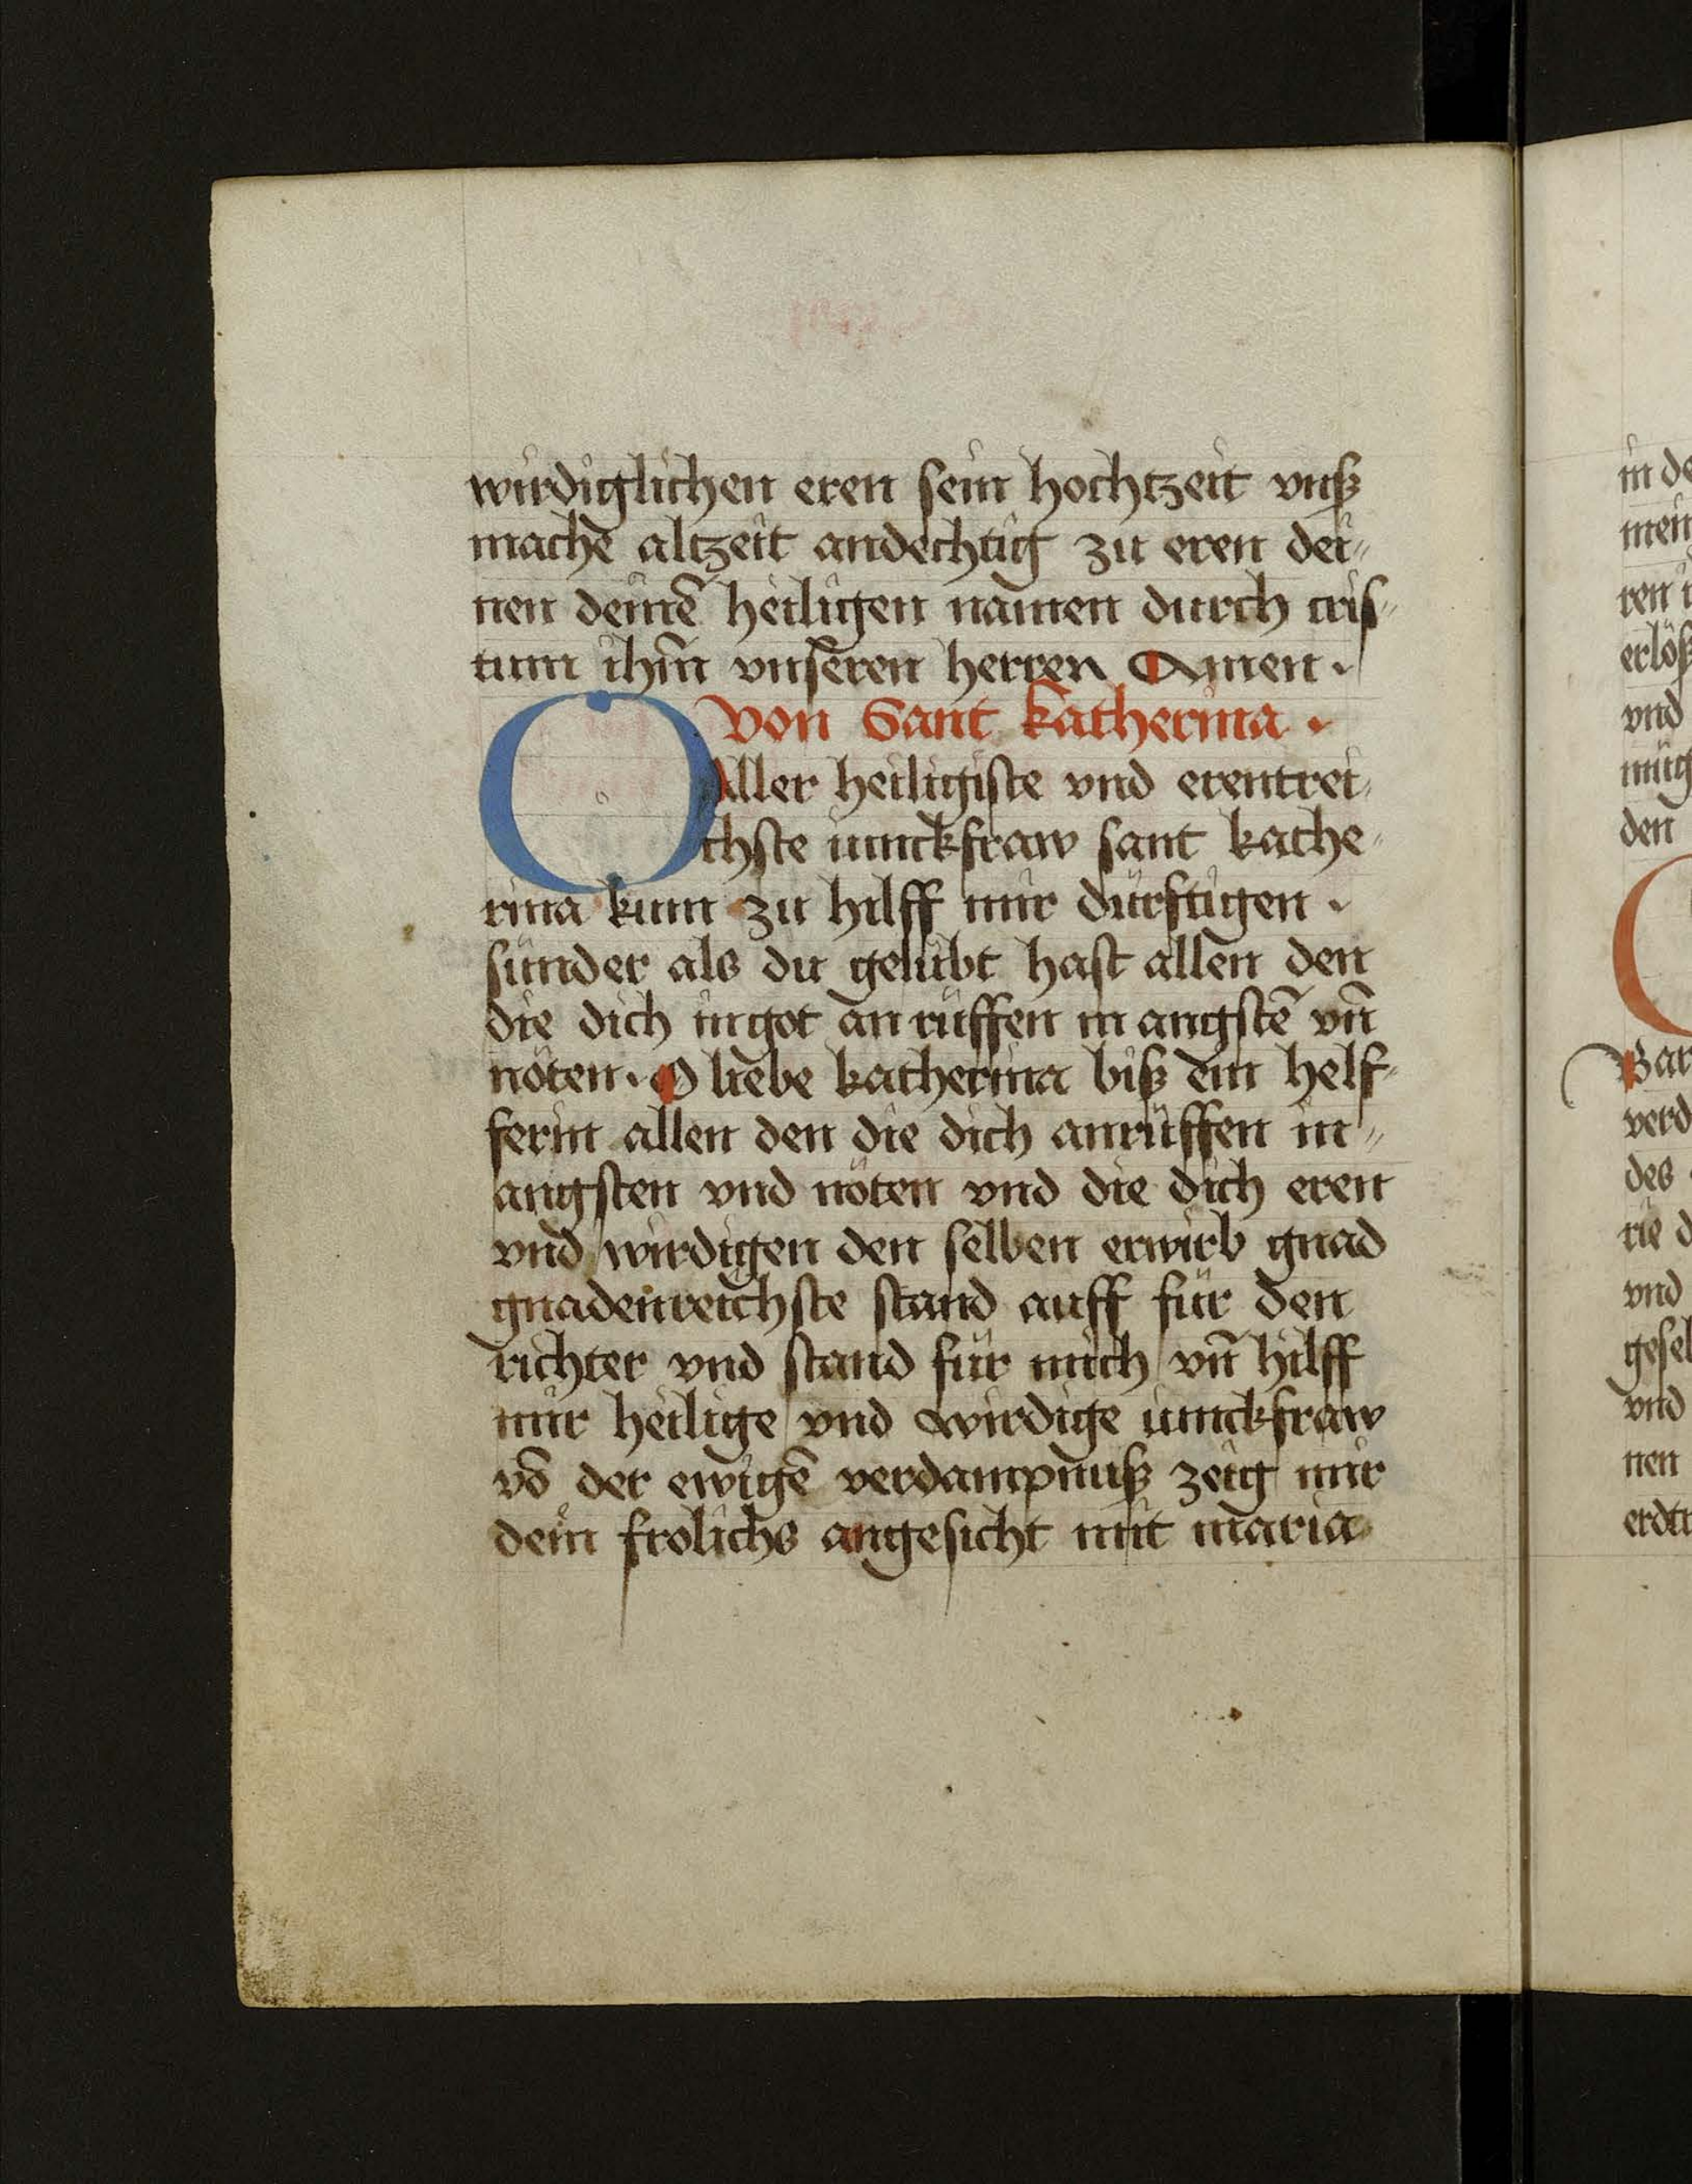 wirdiglichen eren sein hochtzeit vnß
mache altzeit andechtig zu eren dei⸗
nen deinē heiligen namen durch cris⸗
tum ihm̄ vnseren herren Amen ·
von Sant Katherina ·
O Aller heiligiste vnd erentrei⸗
chste iunckfraw sant kathe⸗
rina kum zu hilff mir dürftigen ·
sünder als du gelübt hast allen den
die dich in got an rüffen in angstē vn̄
nöten · O liebe katherina biß ein helf⸗
ferin allen den die dich anrüffen in⸗
angsten vnd nöten vnd die dich eren
vnd wirdigen den selben erwirb gnad
gnadenreichste stand auff für den
richter vnd stand für mich vn̄ hilff
mir heilige vnd wirdige iunckfraw
vō der ewigē verdampnuß zeig mir
dein frölichs angesicht mit maria
in de
mein
ren
erlöß
vnd
müg
den
Bar
verd
des
rie d
vnd
gesel
vnd
nen